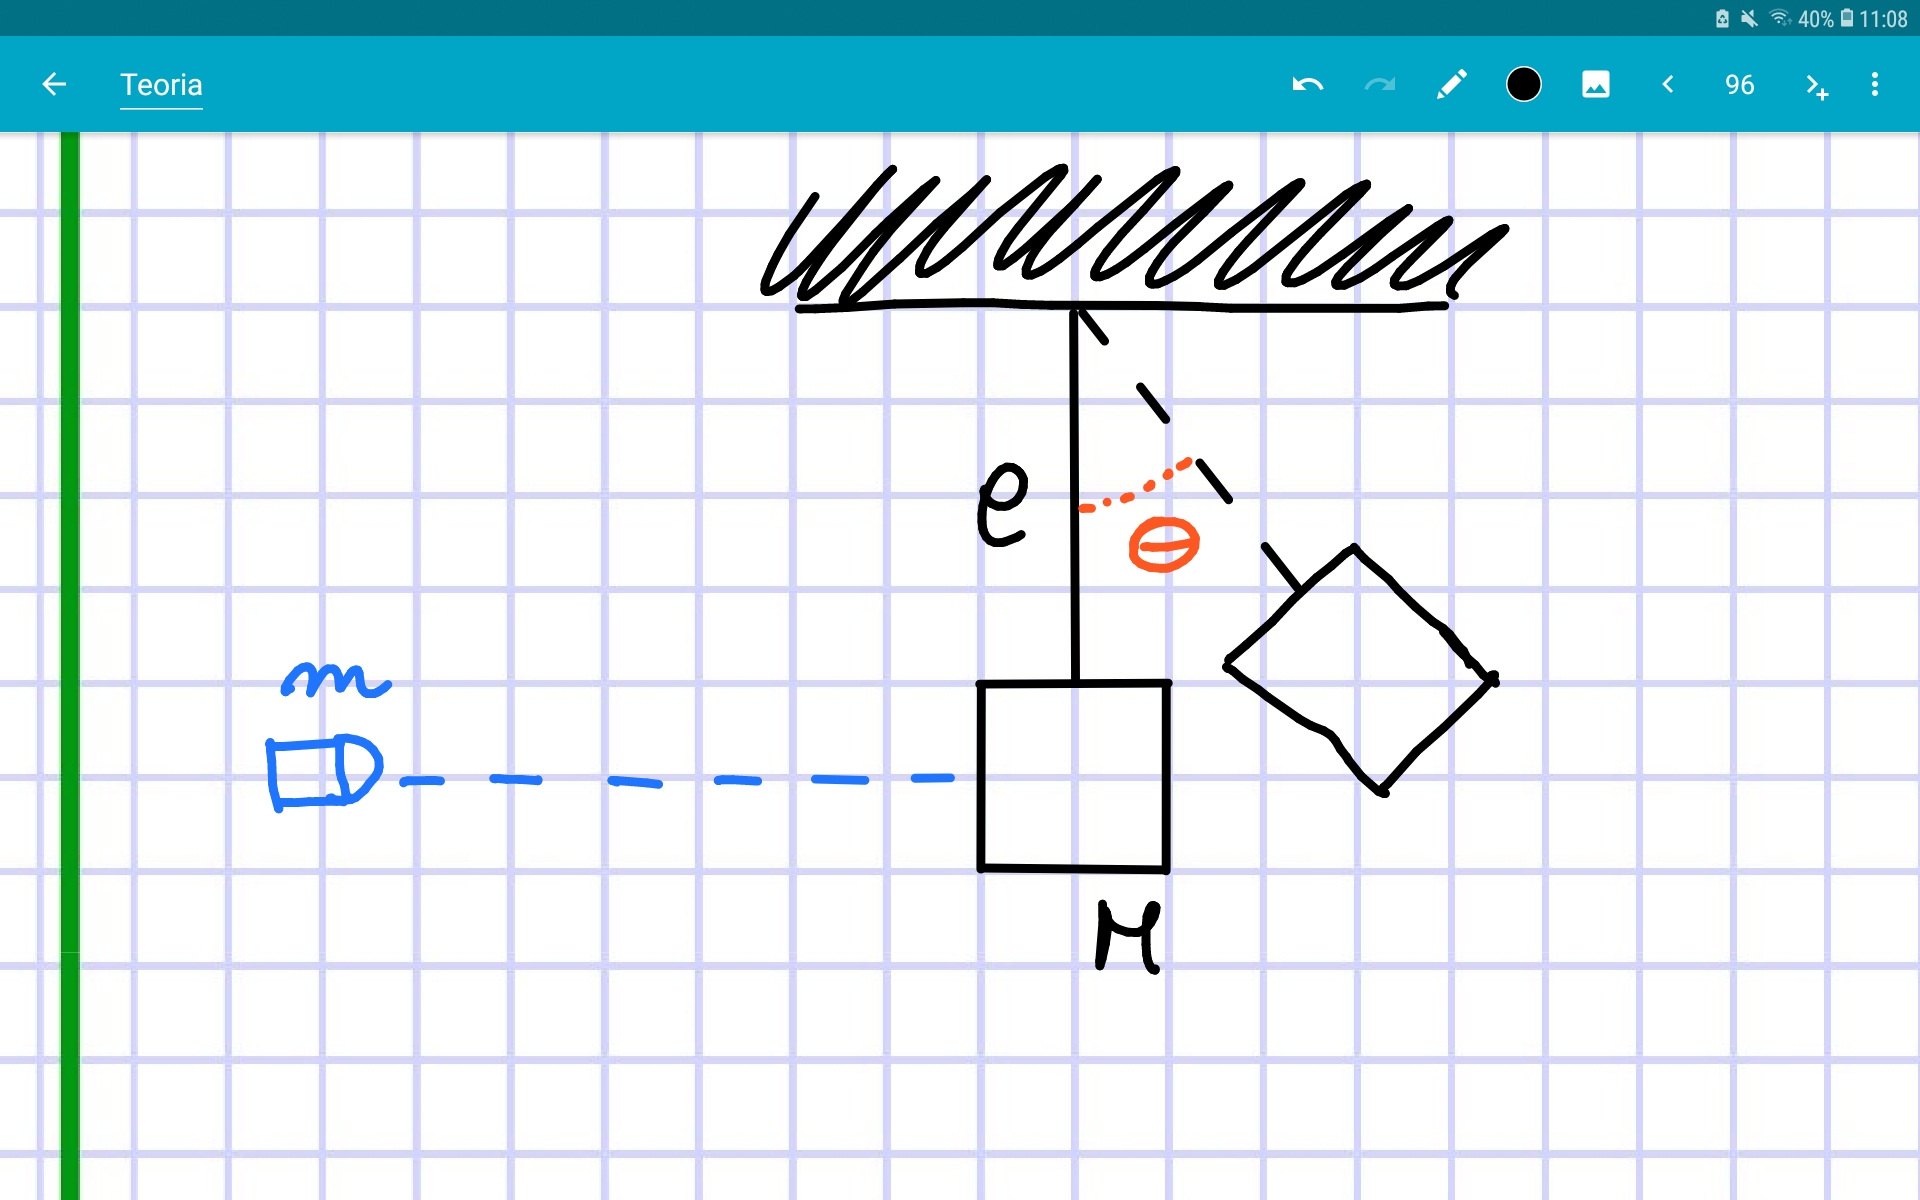 40% 11:08
Teoria 96
e
θ
m
M